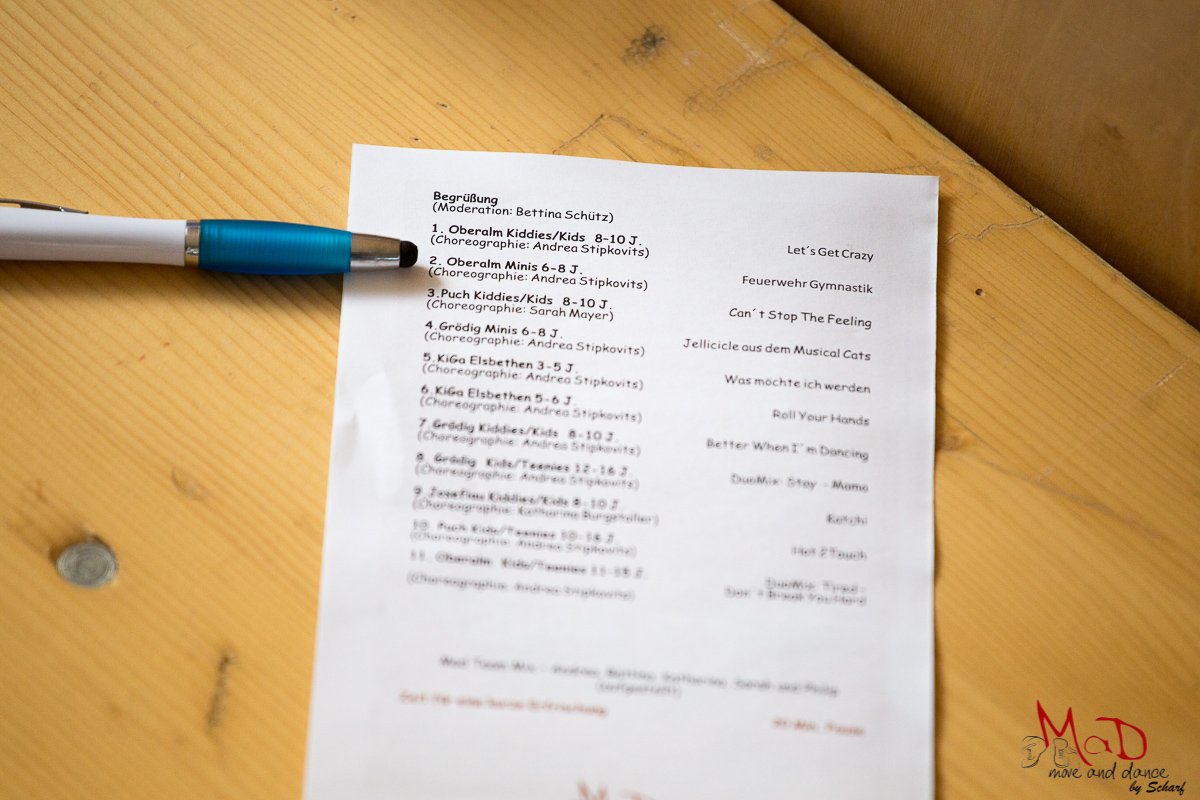 Begrüßung
(Moderation: Bettina Schütz)
1. Oberalm Kiddies/Kids 8-10 J.
(Choreographie: Andrea Stipkovits)
Let´s Get Crazy
2. Oberalm Minis 6-8 J.
(Choreographie: Andrea Stipkovits)
Feuerwehr Gymnastik
3.Puch Kiddies/Kids 8-10 J.
(Choreographie: Sarah Mayer)
Can´t Stop The Feeling
4.Grödig Minis 6-8 J.
(Choreographie: Andrea Stipkovits)
Jellicicle aus dem Musical Cats
5.KiGa Elsbethen 3-5 J.
(Choreographie: Andrea Stipkovits)
Was möchte ich werden
6.KiGa Elsbethen 5-6 J.
(Choreographie: Andrea Stipkovits)
Roll Your Hands
7.Grödig Kiddies/Kids 8-10 J.
(Choreographie: Andrea Stipkovits)
Better When I´m Dancing
8. Grödig Kids/Teenies 12-16 J.
(Choreographie: Andrea Stipkovits)
DuoMix: Stay - Mama
9.Josefiau Kiddies/Kids 8-10 J.
(Choreographie: Katharina Burgstaller)
Katchi
10. Puch Kids/Teenies 10-16 J.
(Choreographie: Andrea Stipkovits)
Hot 2Touch
11. Oberalm Kids/Teenies 11-15 J.
(Choreographie: Andrea Stipkovits)
DuoMix: Tired -
Don´t Break You Hard
Andrea, Bettina, Katharina, Sarah und
Zeit für eine kurze Erfrischung
Min. Pause
MaD
MaD
move and dance
by Scharf